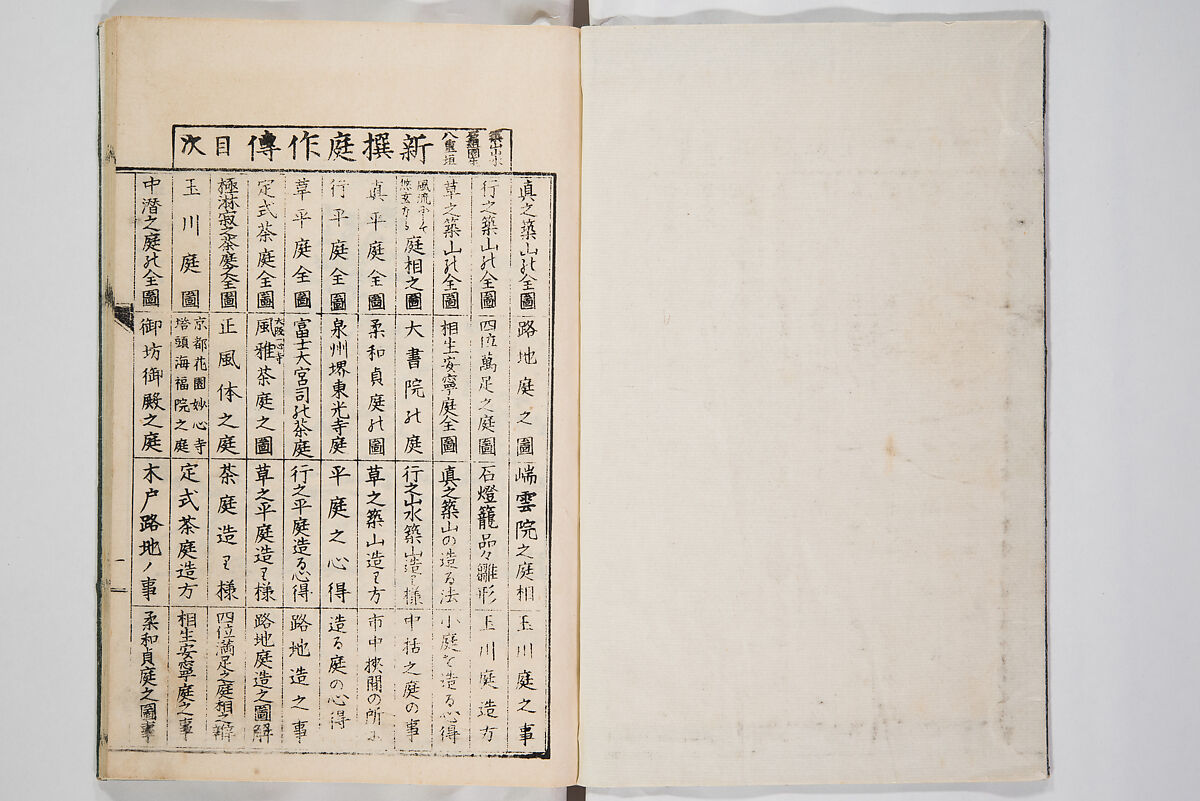 石組園生
八重垣
新撰庭作傳目次
真之築山の全圖
行之築山の全圖
草之築山の全圖
風流にして
悠玄なる
庭相之圖
真平庭全圖
行平庭全圖
草平庭全圖
定式茶庭全圖
極淋寂之茶庭全圖
玉川庭圖
中潜之庭の全圖
路地庭之圖
四位萬足之庭圖
相生安寧庭全圖
大書院の庭
柔和貞庭の圖
泉州堺東光寺庭
富士大宮司の茶庭
大阪一心寺
風雅茶庭之圖
正風体之庭
京都花園妙心寺
塔頭海福院之庭
御坊御殿之庭
端雲院之庭相
石燈籠品々雛形
真之築山の造る法
行之山水築山造り様
草之築山造り方
平庭之心得
行之平庭造る心得
草之平庭造り様
茶庭造り様
定式茶庭造方
木戸路地ノ事
玉川庭之事
玉川庭造方
小庭を造る心得
中括之庭の事
市中挾間の所に
造る庭の心得
路地造之事
路地庭造之圖解
四位満足之庭相之辯
相生安寧庭之事
柔和貞庭之圖事
一